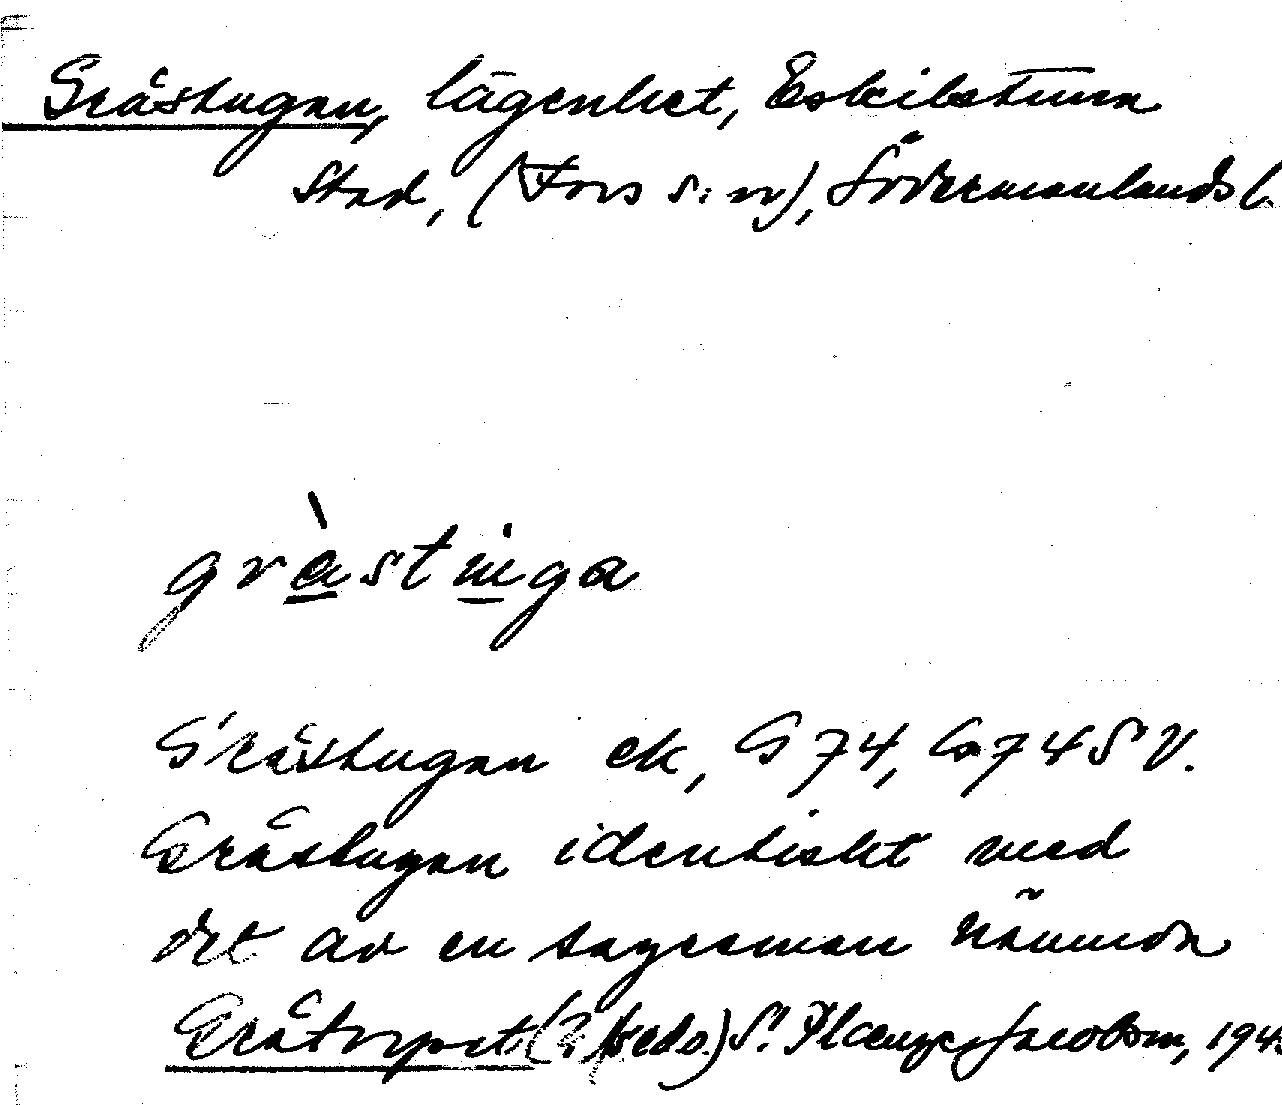 Gråstugan, lägenhet, Eskilstuna
Stad, (Fors s:n), Södermanlands l.
gråstuga
Gråstugan ek, G 74, Ga 74 SV.
Gråstugan identiskt med
det av en sagesman nämnda
Gråtorpet (? redo.) S. Jacobson, 194